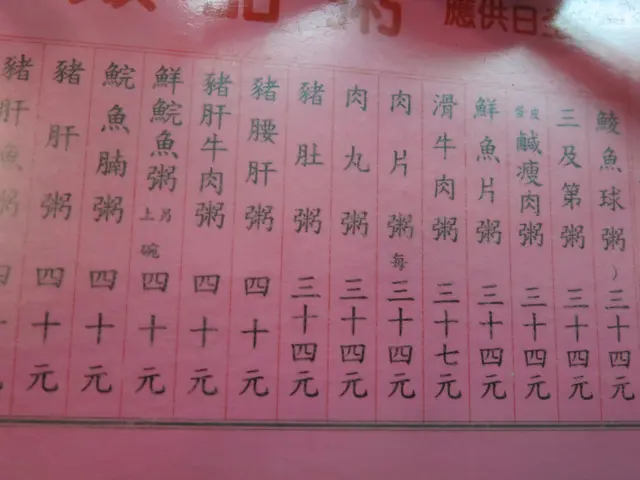 全日供應
粥
鯪魚球粥)三十四元
三及第粥三十四元
皮蛋鹹瘦肉粥三十四元
鮮魚片粥三十四元
滑牛肉粥三十七元
肉片粥每三十四元
肉丸粥三十四元
豬肚粥三十四元
豬腰肝粥四十元
豬肝牛肉粥四十元
鮮鯇魚粥另上碗四十元
鯇魚腩粥四十元
豬肝粥四十元
豬肝魚粥四十元